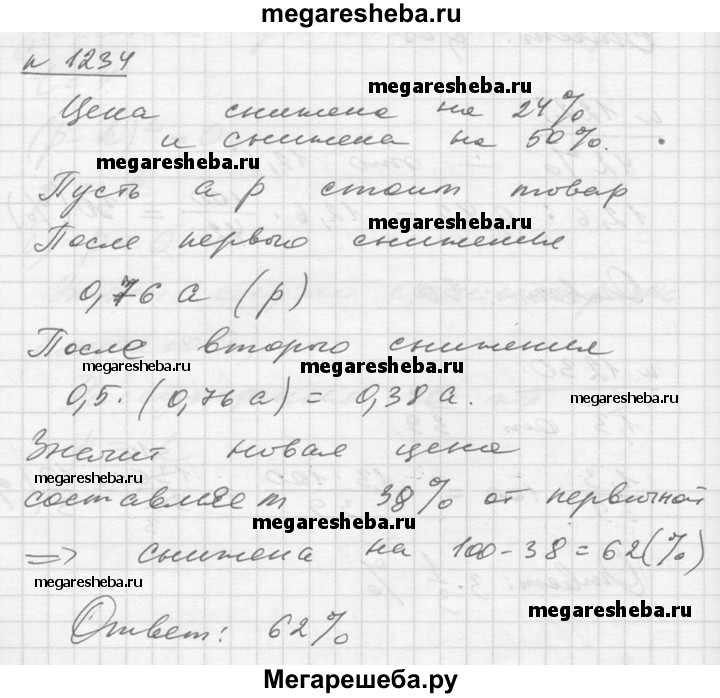 megaresheba.ru
№ 1234
megaresheba.ru
Цена снижена на 24%
и снижена на 50%.
megaresheba.ru
Пусть а р стоит товар
megaresheba.ru
После первого снижения
megaresheba.ru
0,76 а (р)
После второго снижения
megaresheba.ru
megaresheba.ru
0,5 · (0,76 а) = 0,38 а.
megaresheba.ru
Значит новая цена
megaresheba.ru
составляет 38% от первичной
megaresheba.ru
=> снижена на 100 - 38 = 62 (%)
megaresheba.ru
megaresheba.ru
Ответ: 62%
Мегарешеба.ру